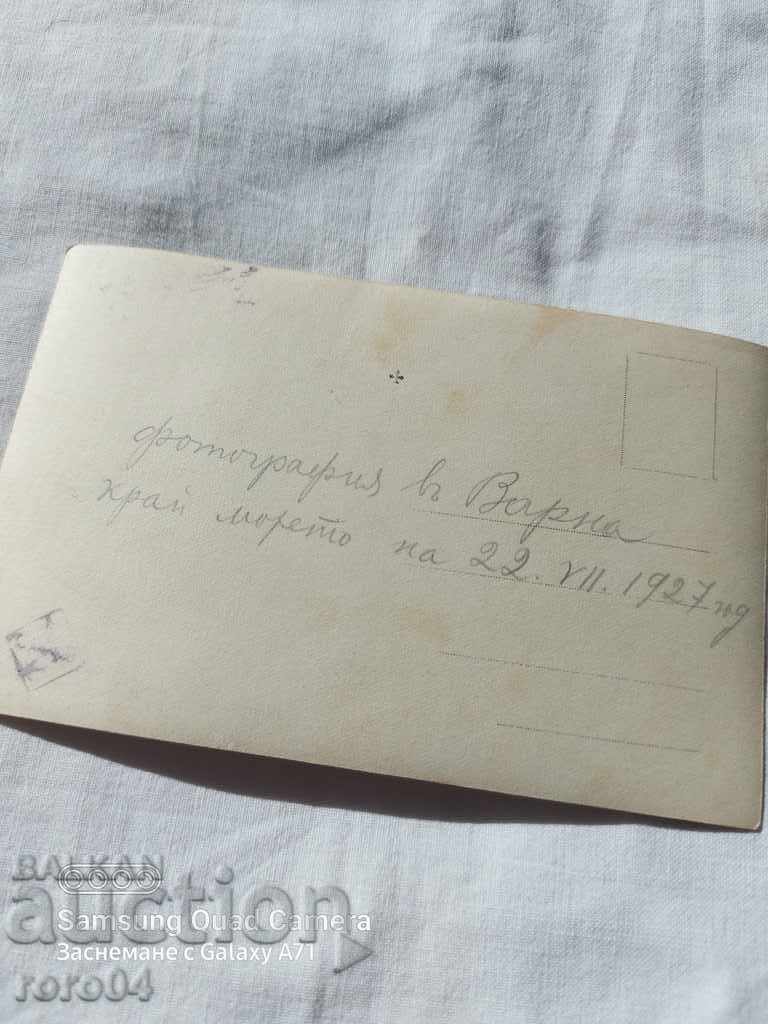 фотография въ Варна
край морето на 22. VII. 1927 год
BALKAN
auction
Samsung Quad Camera
Заснемане с Galaxy A71
roro04